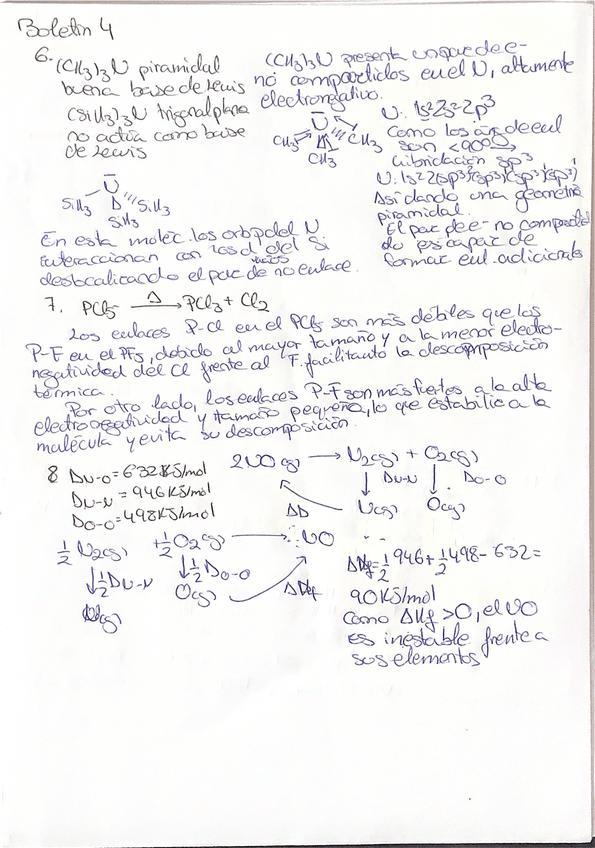 Boletín 4
6.
(CH3)3N piramidal
buena base de Lewis
(SiH3)3N trigonal plana
no actúa como base
de Lewis
(CH3)3N presenta un par de e-
no compartidos en el N, altamente
electronegativo.
N
CH3 CH3
CH3
N: 1s²2s²2p³
Como los áng de enl
son <90º
hibridación sp³
N: 1s²2(sp³)²(sp³)¹(sp³)¹(sp³)¹
Así dando una geometría
piramidal.
El par de e- no comparti
do es capaz de
formar enl. adicionales
N
SiH3 SiH3
SiH3
En esta moléc. los orb p del N
interaccionan con los d del Si
vacíos
deslocalizando el par de no enlace.
7. PCl5 Δ→ PCl3 + Cl2
Los enlaces P-Cl en el PCl5 son más débiles que los
P-F en el PF5, debido al mayor tamaño y a la menor electro-
negatividad del Cl frente al F, facilitanto la descomposición
térmica.
Por otro lado, los enlaces P-F son más fuertes a la alta
electronegatividad y tamaño pequeño, lo que estabiliza la
molécula y evita su descomposición.
8 DN-O = 632 KJ/mol
DN-N = 946 KJ/mol
DO-O = 498 KJ/mol
2NO(g) → N2(g) + O2(g)
↓ DN-N ↓ DO-O
N(g) O(g)
ΔD
½ N2(g) + ½ O2(g) → NO
↓ ½ DN-N ↓ ½ DO-O
O(g)
N(g)
ΔHf
ΔHf = ½ 946 + ½ 498 - 632 =
90 KJ/mol
Como ΔHf > 0, el NO
es inestable frente a
sus elementos